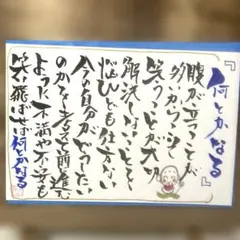 『何とかなる』
腹が立つことが
多いからこそ
笑うことが大切
解決しないことを
悩んでも仕方ない
今の自分がどうしたい
のかを考え前進む
ように不満や不安も
笑い飛ばせば何とかなる